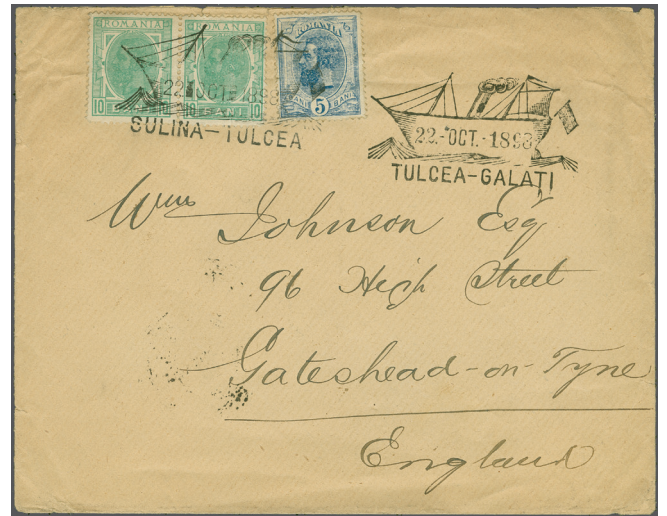 ROMANIA ROMANIA ROMANIA
10 BANI 10 10 BANI 10 BANI 5 BANI
22 OCT 1898
SULINA-TULCEA
22.-OCT.-1898
TULCEA-GALAȚI
Wm Johnson Esq
96 High Street
Gateshead-on-Tyne
England